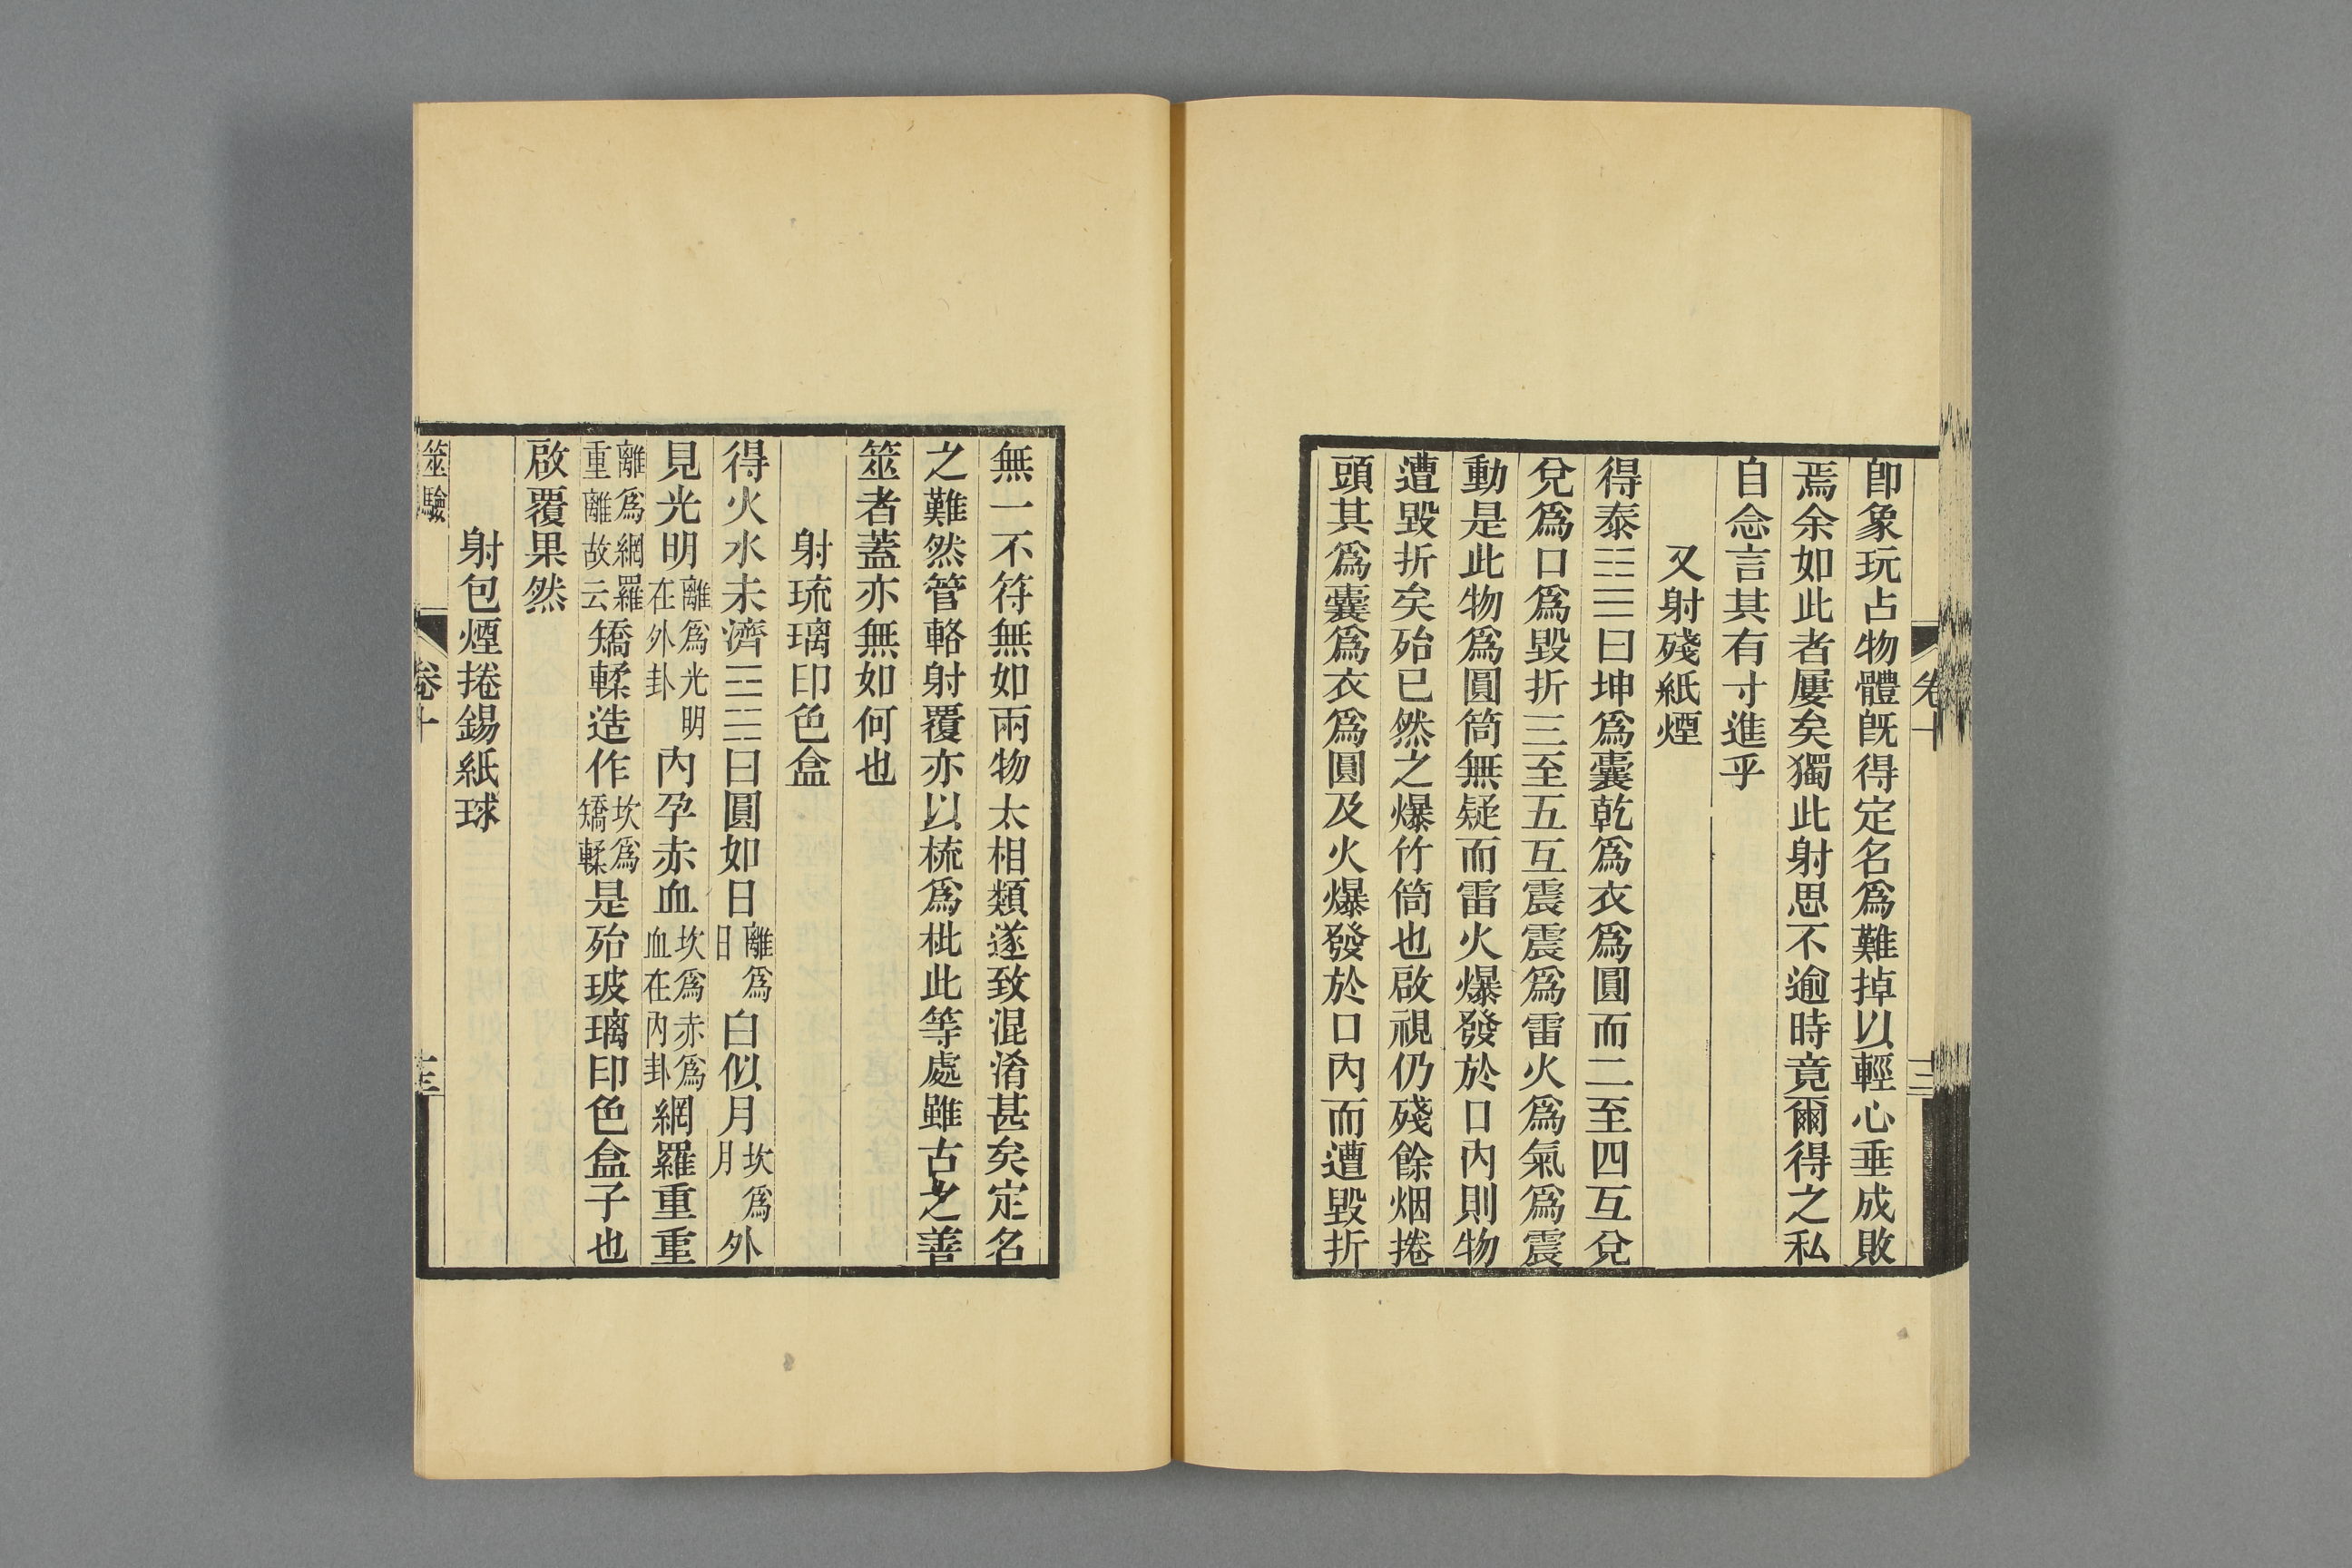 卽象玩占物體旣得定名爲難掉以輕心垂成敗
焉余如此者屢矣獨此射思不逾時竟爾得之私
自念言其有寸進乎
又射殘紙煙
得泰☷☰曰坤爲囊乾爲衣爲圓而二至四互兌
兌爲口爲毀折三至五互震震爲雷火爲氣爲震
動是此物爲圓筒無疑而雷火爆發於口內則物
遭毀折矣殆已然之爆竹筒也啟視仍殘餘烟捲
頭其爲囊爲衣爲圓及火爆發於口內而遭毀折
無一不符無如兩物太相類遂致混淆甚矣定名
之難然管輅射覆亦以梳爲枇此等處雖古之善
筮者蓋亦無如何也
射琉璃印色盒
得火水未濟☲☵曰圓如日離爲日白似月坎爲月外
見光明離爲光明在外卦內孕赤血坎爲赤爲血在內卦網羅重重
離爲網羅重離故云矯輮造作坎爲矯輮是殆玻璃印色盒子也
啟覆果然
射包煙捲錫紙球
筮驗
卷十
十三